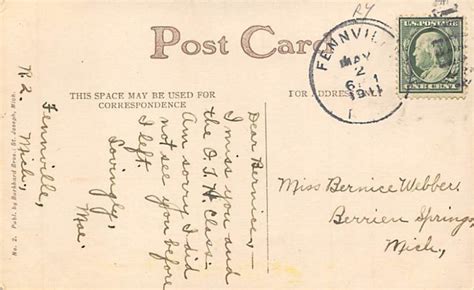 RY
Post Card
THIS SPACE MAY BE USED FOR
CORRESPONDENCE
FOR ADDRESS
FENNVIL
MAY
2
1911
U.S. POSTAGE
ONE CENT
Dear Bernice—
I miss you and
the O.T.H. Class.
Am sorry I did
not see you before
I left.
Lovingly,
Mae.
Fennville,
Mich.,
R2.
Miss Bernice Webber,
Berrien Springs,
Mich.,
No. 2. Publ. by Burkhard Bros., St. Joseph, Mich.